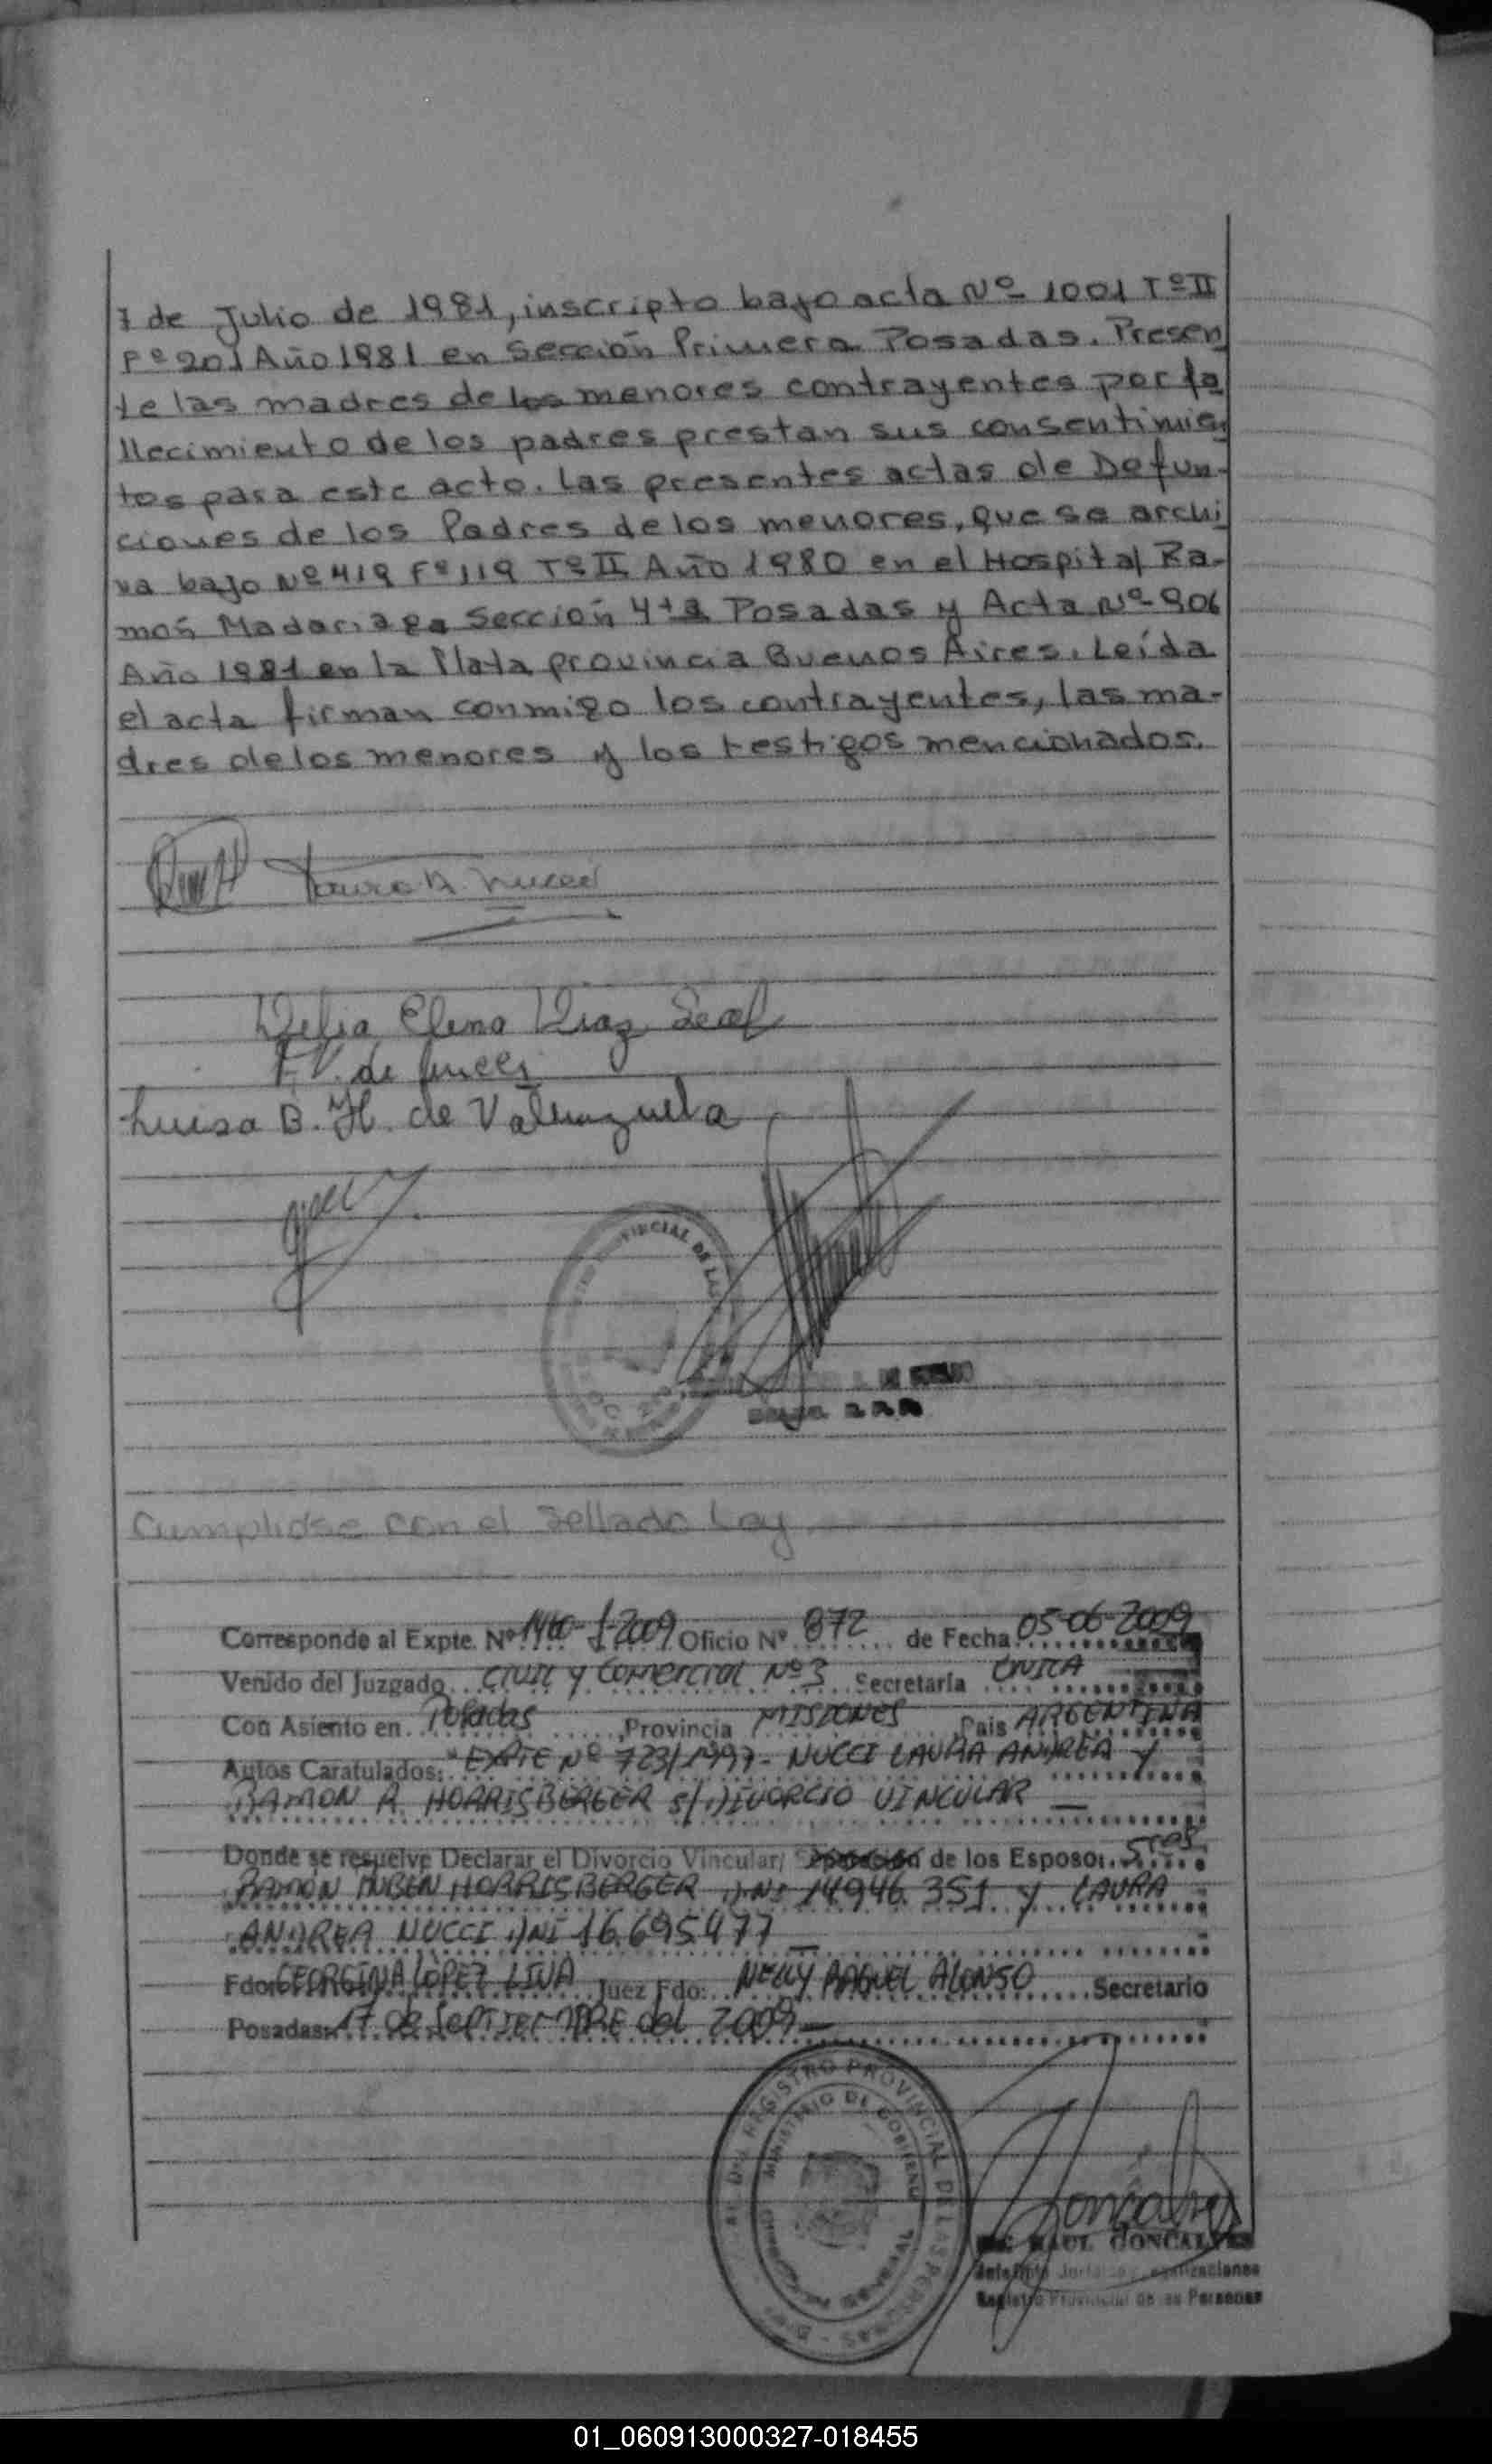 7 de Julio de 1981, inscripto bajo acta Nº 1001 Tº II
Fº 201 Año 1981 en Sección Primera Posadas. Presen
te las madres de los menores contrayentes por fa
llecimiento de los padres prestan sus consentimien
tos para este acto. Las presentes actas de Defun-
ciones de los Padres de los menores, que se archi
va bajo Nº 419 Fº 119 Tº II Año 1980 en el Hospital Ra-
mos Madariaga Sección 4ta Posadas y Acta Nº 906
Año 1981 en la Plata provincia Buenos Aires. Leída
el acta firman conmigo los contrayentes, las ma-
dres de los menores y los testigos mencionados.
Laura A. Nucci
Delia Elena Diaz Leal
V. de Nucci
Luisa B. H. de Valenzuela
Cumplidse con el Sellado Ley
Corresponde al Expte. Nº 1460-J-2009 Oficio Nº 872 de Fecha 05-06-2009
Venido del Juzgado CIVIL y COMERCIAL Nº 3 Secretaría ÚNICA
Con Asiento en Posadas, Provincia MISIONES País ARGENTINA
Autos Caratulados: "EXPTE Nº 723/1997- NUCCI LAURA ANDREA Y
RAMON R. HORRISBERGER s/DIVORCIO VINCULAR
Donde se resuelve Declarar el Divorcio Vincular/ Separación de los Esposo: Sres
RAMÓN RUBEN HORRISBERGER DNI 14.946.351 y LAURA
ANDREA NUCCI DNI 16.695.477
Fdo: GEORGINA LÓPEZ LIVA Juez Fdo: NELLY RAQUEL ALONSO Secretario
Posadas: 17 de SEPTIEMBRE del 2009
REGISTRO PROVINCIAL DE LAS PERSONAS
MINISTERIO DE GOBIERNO
RAUL GONCALVES
Registro Provincial de las Personas
01_060913000327-018455